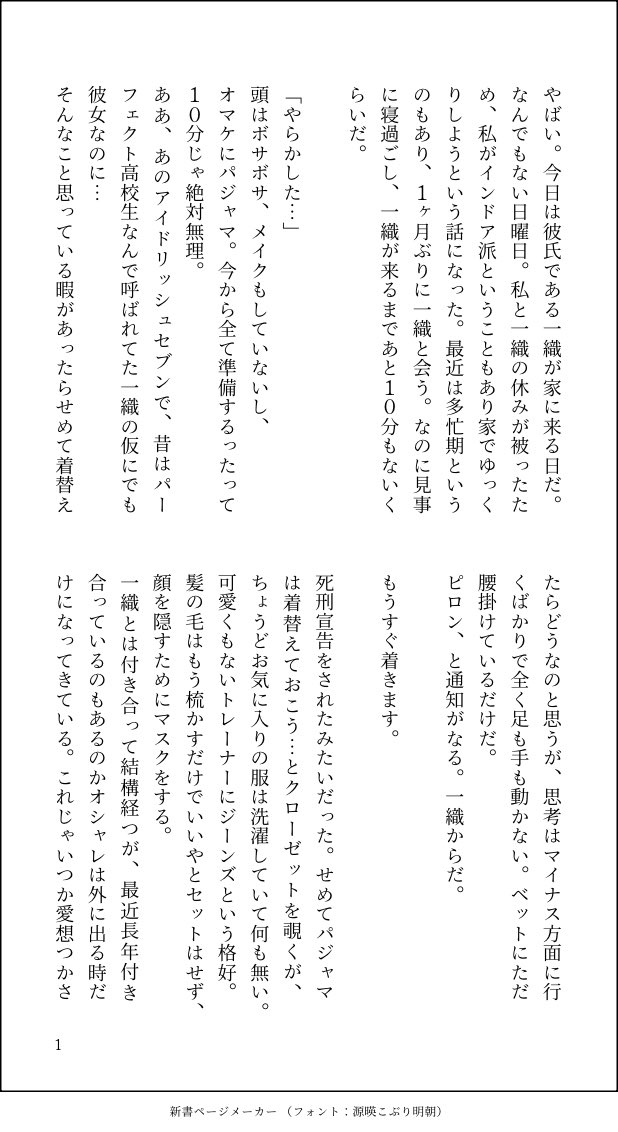 やばい。今日は彼氏である一織が家に来る日だ。
なんでもない日曜日。私と一織の休みが被ったた
め、私がインドア派ということもあり家でゆっく
りしようという話になった。最近は多忙期という
のもあり、1ヶ月ぶりに一織と会う。なのに見事
に寝過ごし、一織が来るまであと10分もないく
らいだ。
「やらかした…」
頭はボサボサ、メイクもしていないし、
オマケにパジャマ。今から全て準備するったって
10分じゃ絶対無理。
ああ、あのアイドリッシュセブンで、昔はパー
フェクト高校生なんて呼ばれてた一織の仮にでも
彼女なのに…
そんなこと思っている暇があったらせめて着替え
たらどうなのと思うが、思考はマイナス方面に行
くばかりで全く足も手も動かない。ベットにただ
腰掛けているだけだ。
ピロン、と通知がなる。一織からだ。
もうすぐ着きます。
死刑宣告をされたみたいだった。せめてパジャマ
は着替えておこう…とクローゼットを覗くが、
ちょうどお気に入りの服は洗濯していて何も無い。
可愛くもないトレーナーにジーンズという格好。
髪の毛はもう梳かすだけでいいやとセットはせず、
顔を隠すためにマスクをする。
一織とは付き合って結構経つが、最近長年付き
合っているのもあるのかオシャレは外に出る時だ
けになってきている。これじゃいつか愛想つかさ
1
新書ページメーカー（フォント：源暎こぶり明朝）